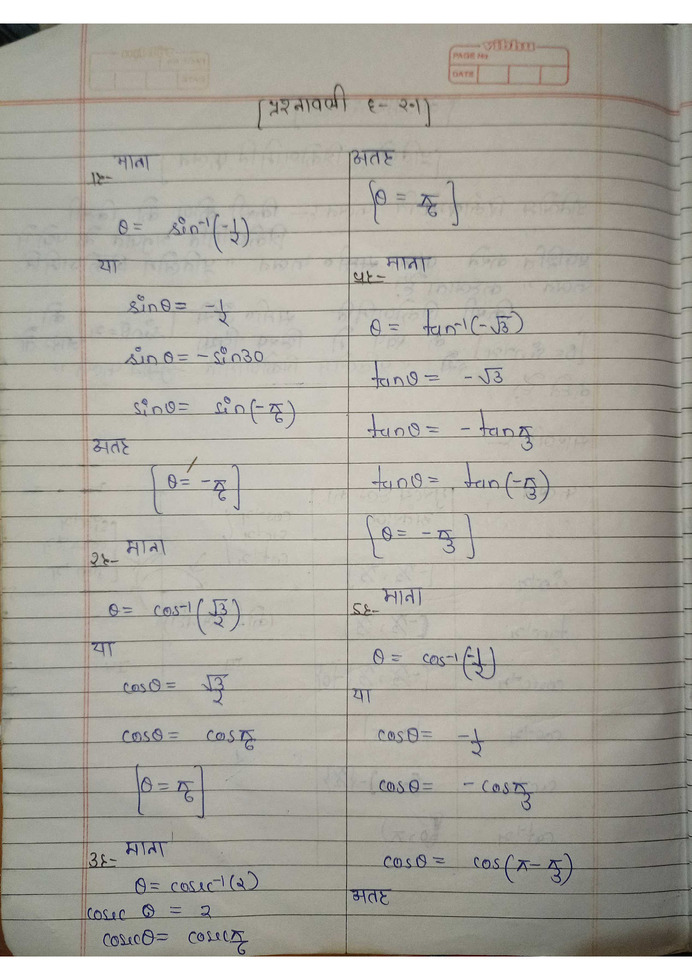 vibhu
PAGE No
DATE
[प्रश्नावली ६- २.1]
1ः- माना
θ = sin⁻¹(-1/2)
या
sinθ = -1/2
sinθ = -sin30
sinθ = sin(-π/6)
अतः
[θ = -π/6]
२ः- माना
θ = cos⁻¹(√3/2)
या
cosθ = √3/2
cosθ = cosπ/6
[θ = π/6]
3ः- माना
θ = cosec⁻¹(2)
cosec θ = 2
cosecθ = cosecπ/6
अतः
[θ = π/6]
४ः- माना
θ = tan⁻¹(-√3)
tanθ = -√3
tanθ = - tanπ/3
tanθ = tan(-π/3)
[θ = -π/3]
5ः- माना
θ = cos⁻¹(-1/2)
या
cosθ = -1/2
cosθ = - cosπ/3
cosθ = cos(π - π/3)
अतः